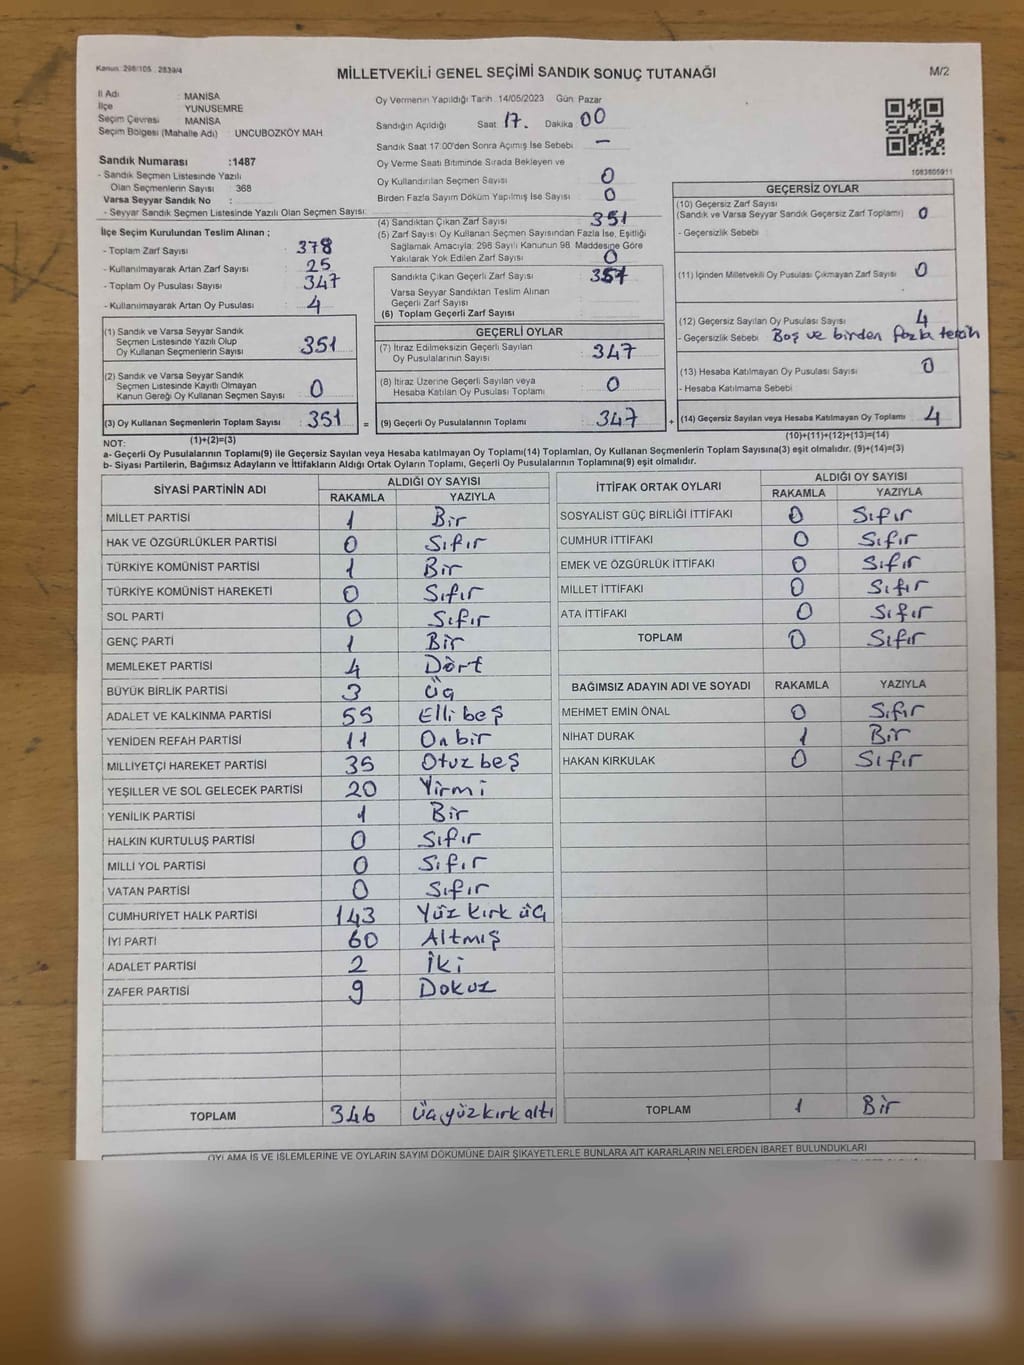 Kanun: 298/105 , 2839/4
MİLLETVEKİLİ GENEL SEÇİMİ SANDIK SONUÇ TUTANAĞI
M/2
İl Adı : MANİSA
İlçe : YUNUSEMRE
Seçim Çevresi : MANİSA
Seçim Bölgesi (Mahalle Adı) : UNCUBOZKÖY MAH
Sandık Numarası :1487
- Sandık Seçmen Listesinde Yazılı
Olan Seçmenlerin Sayısı : 368
Varsa Seyyar Sandık No :
- Seyyar Sandık Seçmen Listesinde Yazılı Olan Seçmen Sayısı:
Oy Vermenin Yapıldığı Tarih :14/05/2023 Gün: Pazar
Sandığın Açıldığı Saat 17. Dakika 00
Sandık Saat 17:00'den Sonra Açılmış İse Sebebi –
Oy Verme Saati Bitiminde Sırada Bekleyen ve
Oy Kullandırılan Seçmen Sayısı 0
Birden Fazla Sayım Döküm Yapılmış İse Sayısı 0
1083805911
İlçe Seçim Kurulundan Teslim Alınan ;
- Toplam Zarf Sayısı : 378
- Kullanılmayarak Artan Zarf Sayısı : 25
- Toplam Oy Pusulası Sayısı : 347
- Kullanılmayarak Artan Oy Pusulası : 4
(1) Sandık ve Varsa Seyyar Sandık
Seçmen Listesinde Yazılı Olup
Oy Kullanan Seçmenlerin Sayısı : 351
(2) Sandık ve Varsa Seyyar Sandık
Seçmen Listesinde Kayıtlı Olmayan
Kanun Gereği Oy Kullanan Seçmen Sayısı : 0
(3) Oy Kullanan Seçmenlerin Toplam Sayısı : 351 =
(1)+(2)=(3)
(4) Sandıktan Çıkan Zarf Sayısı : 351
(5) Zarf Sayısı Oy Kullanan Seçmen Sayısından Fazla İse, Eşitliği
Sağlamak Amacıyla; 298 Sayılı Kanunun 98. Maddesine Göre
Yakılarak Yok Edilen Zarf Sayısı : 0
Sandıkta Çıkan Geçerli Zarf Sayısı : 351
Varsa Seyyar Sandıktan Teslim Alınan
Geçerli Zarf Sayısı :
(6) Toplam Geçerli Zarf Sayısı :
GEÇERLİ OYLAR
(7) İtiraz Edilmeksizin Geçerli Sayılan
Oy Pusulalarının Sayısı : 347
(8) İtiraz Üzerine Geçerli Sayılan veya
Hesaba Katılan Oy Pusulası Toplamı : 0
(9) Geçerli Oy Pusulalarının Toplamı : 347 +
GEÇERSİZ OYLAR
(10) Geçersiz Zarf Sayısı
(Sandık ve Varsa Seyyar Sandık Geçersiz Zarf Toplamı) : 0
- Geçersizlik Sebebi :
(11) İçinden Milletvekili Oy Pusulası Çıkmayan Zarf Sayısı : 0
(12) Geçersiz Sayılan Oy Pusulası Sayısı : 4
- Geçersizlik Sebebi : Boş ve birden fazla tercih
(13) Hesaba Katılmayan Oy Pusulası Sayısı : 0
- Hesaba Katılmama Sebebi :
(14) Geçersiz Sayılan veya Hesaba Katılmayan Oy Toplamı : 4
(10)+(11)+(12)+(13)=(14)
NOT:
a- Geçerli Oy Pusulalarının Toplamı(9) ile Geçersiz Sayılan veya Hesaba katılmayan Oy Toplamı(14) Toplamları, Oy Kullanan Seçmenlerin Toplam Sayısına(3) eşit olmalıdır. (9)+(14)=(3)
b- Siyasi Partilerin, Bağımsız Adayların ve İttifakların Aldığı Ortak Oyların Toplamı, Geçerli Oy Pusulalarının Toplamına(9) eşit olmalıdır.
SİYASİ PARTİNİN ADI ALDIĞI OY SAYISI
RAKAMLA YAZIYLA
MİLLET PARTİSİ 1 Bir
HAK VE ÖZGÜRLÜKLER PARTİSİ 0 Sıfır
TÜRKİYE KOMÜNİST PARTİSİ 1 Bir
TÜRKİYE KOMÜNİST HAREKETİ 0 Sıfır
SOL PARTİ 0 Sıfır
GENÇ PARTİ 1 Bir
MEMLEKET PARTİSİ 4 Dört
BÜYÜK BİRLİK PARTİSİ 3 Üç
ADALET VE KALKINMA PARTİSİ 55 Elli beş
YENİDEN REFAH PARTİSİ 11 On bir
MİLLİYETÇİ HAREKET PARTİSİ 35 Otuz beş
YEŞİLLER VE SOL GELECEK PARTİSİ 20 Yirmi
YENİLİK PARTİSİ 1 Bir
HALKIN KURTULUŞ PARTİSİ 0 Sıfır
MİLLİ YOL PARTİSİ 0 Sıfır
VATAN PARTİSİ 0 Sıfır
CUMHURİYET HALK PARTİSİ 143 Yüz kırk üç
İYİ PARTİ 60 Altmış
ADALET PARTİSİ 2 İki
ZAFER PARTİSİ 9 Dokuz
TOPLAM 346 Üç yüz kırk altı
İTTİFAK ORTAK OYLARI ALDIĞI OY SAYISI
RAKAMLA YAZIYLA
SOSYALİST GÜÇ BİRLİĞİ İTTİFAKI 0 Sıfır
CUMHUR İTTİFAKI 0 Sıfır
EMEK VE ÖZGÜRLÜK İTTİFAKI 0 Sıfır
MİLLET İTTİFAKI 0 Sıfır
ATA İTTİFAKI 0 Sıfır
TOPLAM 0 Sıfır
BAĞIMSIZ ADAYIN ADI VE SOYADI RAKAMLA YAZIYLA
MEHMET EMİN ÖNAL 0 Sıfır
NİHAT DURAK 1 Bir
HAKAN KIRKULAK 0 Sıfır
TOPLAM 1 Bir
OYLAMA İŞ VE İŞLEMLERİNE VE OYLARIN SAYIM DÖKÜMÜNE DAİR ŞİKAYETLERLE BUNLARA AİT KARARLARIN NELERDEN İBARET BULUNDUKLARI